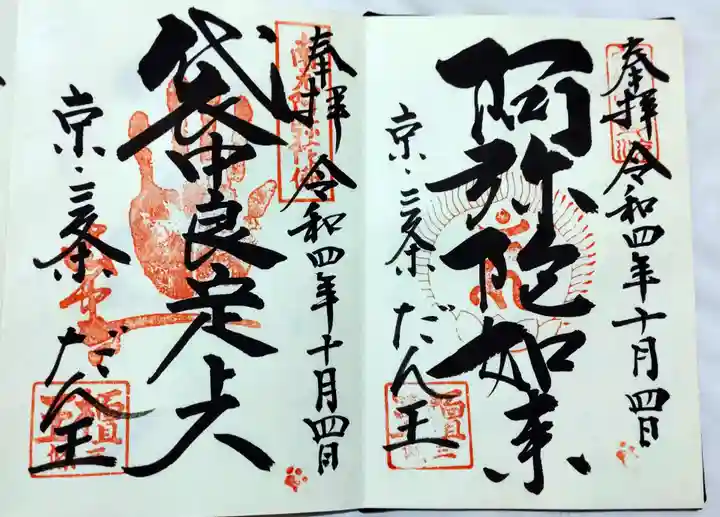 奉拝 令和四年十月四日
阿弥陀如来
京・三条 だん王
奉拝 令和四年十月四日
袋中良定上人
京・三条 だん王